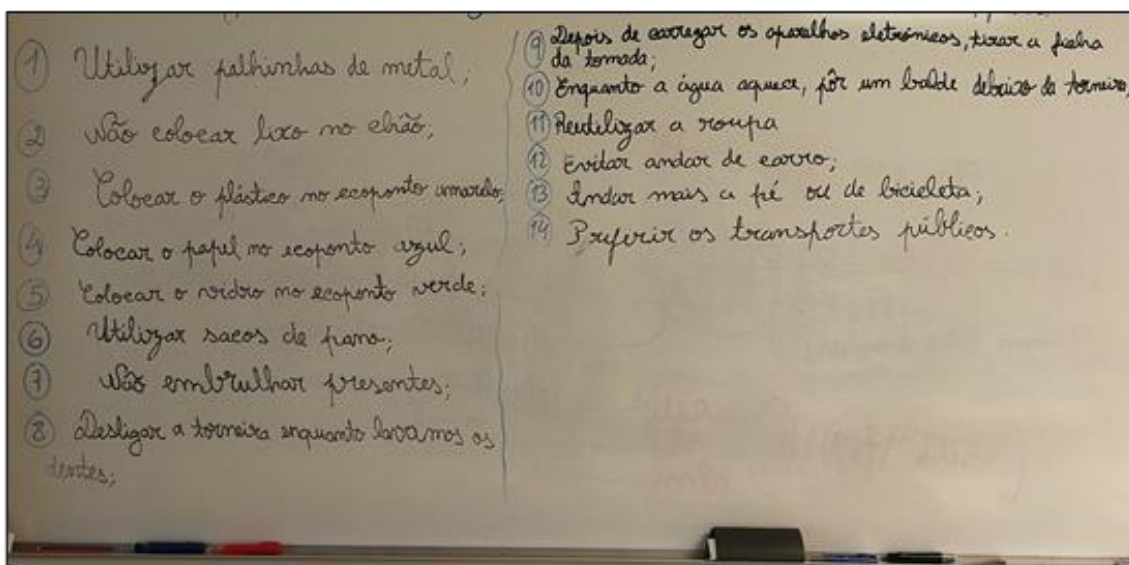 1 Utilizar palhinhas de metal;
2 Não colocar lixo no chão;
3 Colocar o plástico no ecoponto amarelo;
4 Colocar o papel no ecoponto azul;
5 Colocar o vidro no ecoponto verde;
6 Utilizar sacos de pano;
7 Não embrulhar presentes;
8 Desligar a torneira enquanto lavamos os
dentes;
9 Depois de carregar os aparelhos eletrónicos, tirar a ficha
da tomada;
10 Enquanto a água aquece, pôr um balde debaixo da torneira;
11 Reutilizar a roupa
12 Evitar andar de carro;
13 Andar mais a pé ou de bicicleta;
14 Preferir os transportes públicos.